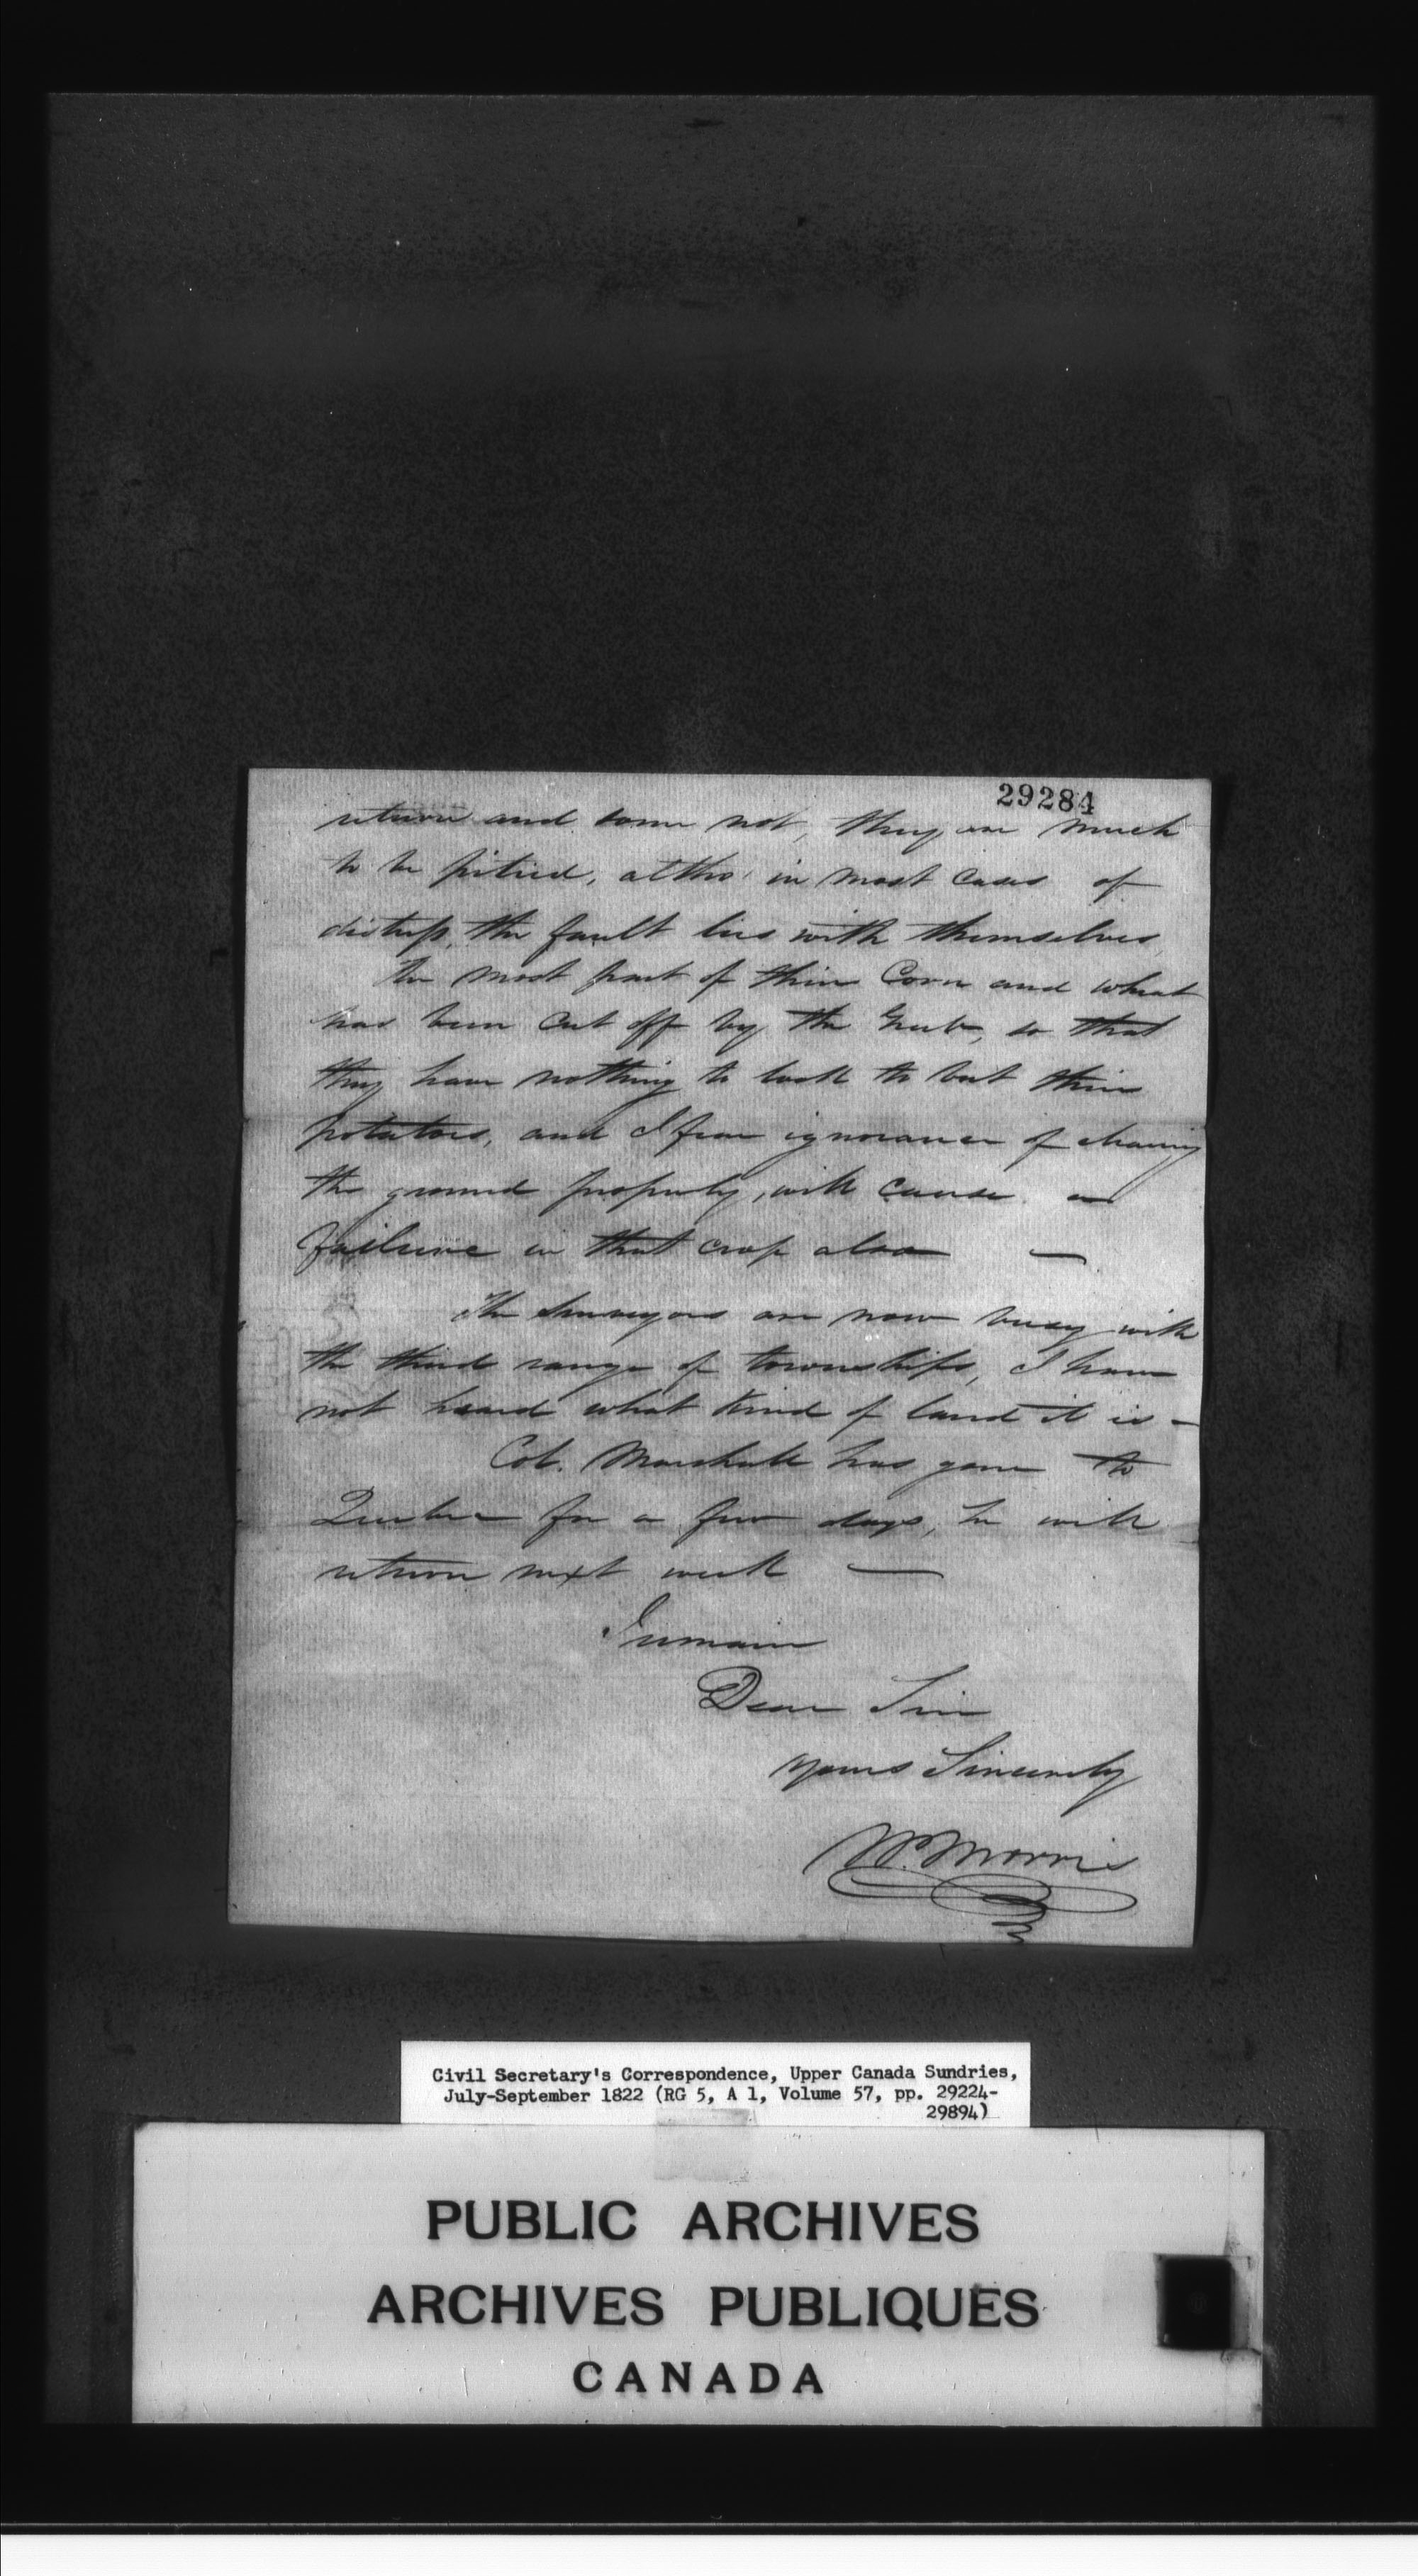 29284
return and some not, they are much
to be pitied, altho' in most cases of
distress, the fault lies with themselves,
The most part of their Corn and wheat
has been cut off by the Grub, so that
they have nothing to look to but their
potatoes, and I fear ignorance of
the ground properly, will cause a
failure in that crop also —
The Surveyors are now busy with
the third range of townships, I have
not heard what kind of land it is —
Col. Marshall has gone to
Quebec for a few days, he will
return next week —
I remain
Dear Sir
yours Sincerely
W. Morris
Civil Secretary's Correspondence, Upper Canada Sundries,
July-September 1822 (RG 5, A 1, Volume 57, pp. 29224-
29894)
PUBLIC ARCHIVES
ARCHIVES PUBLIQUES
CANADA